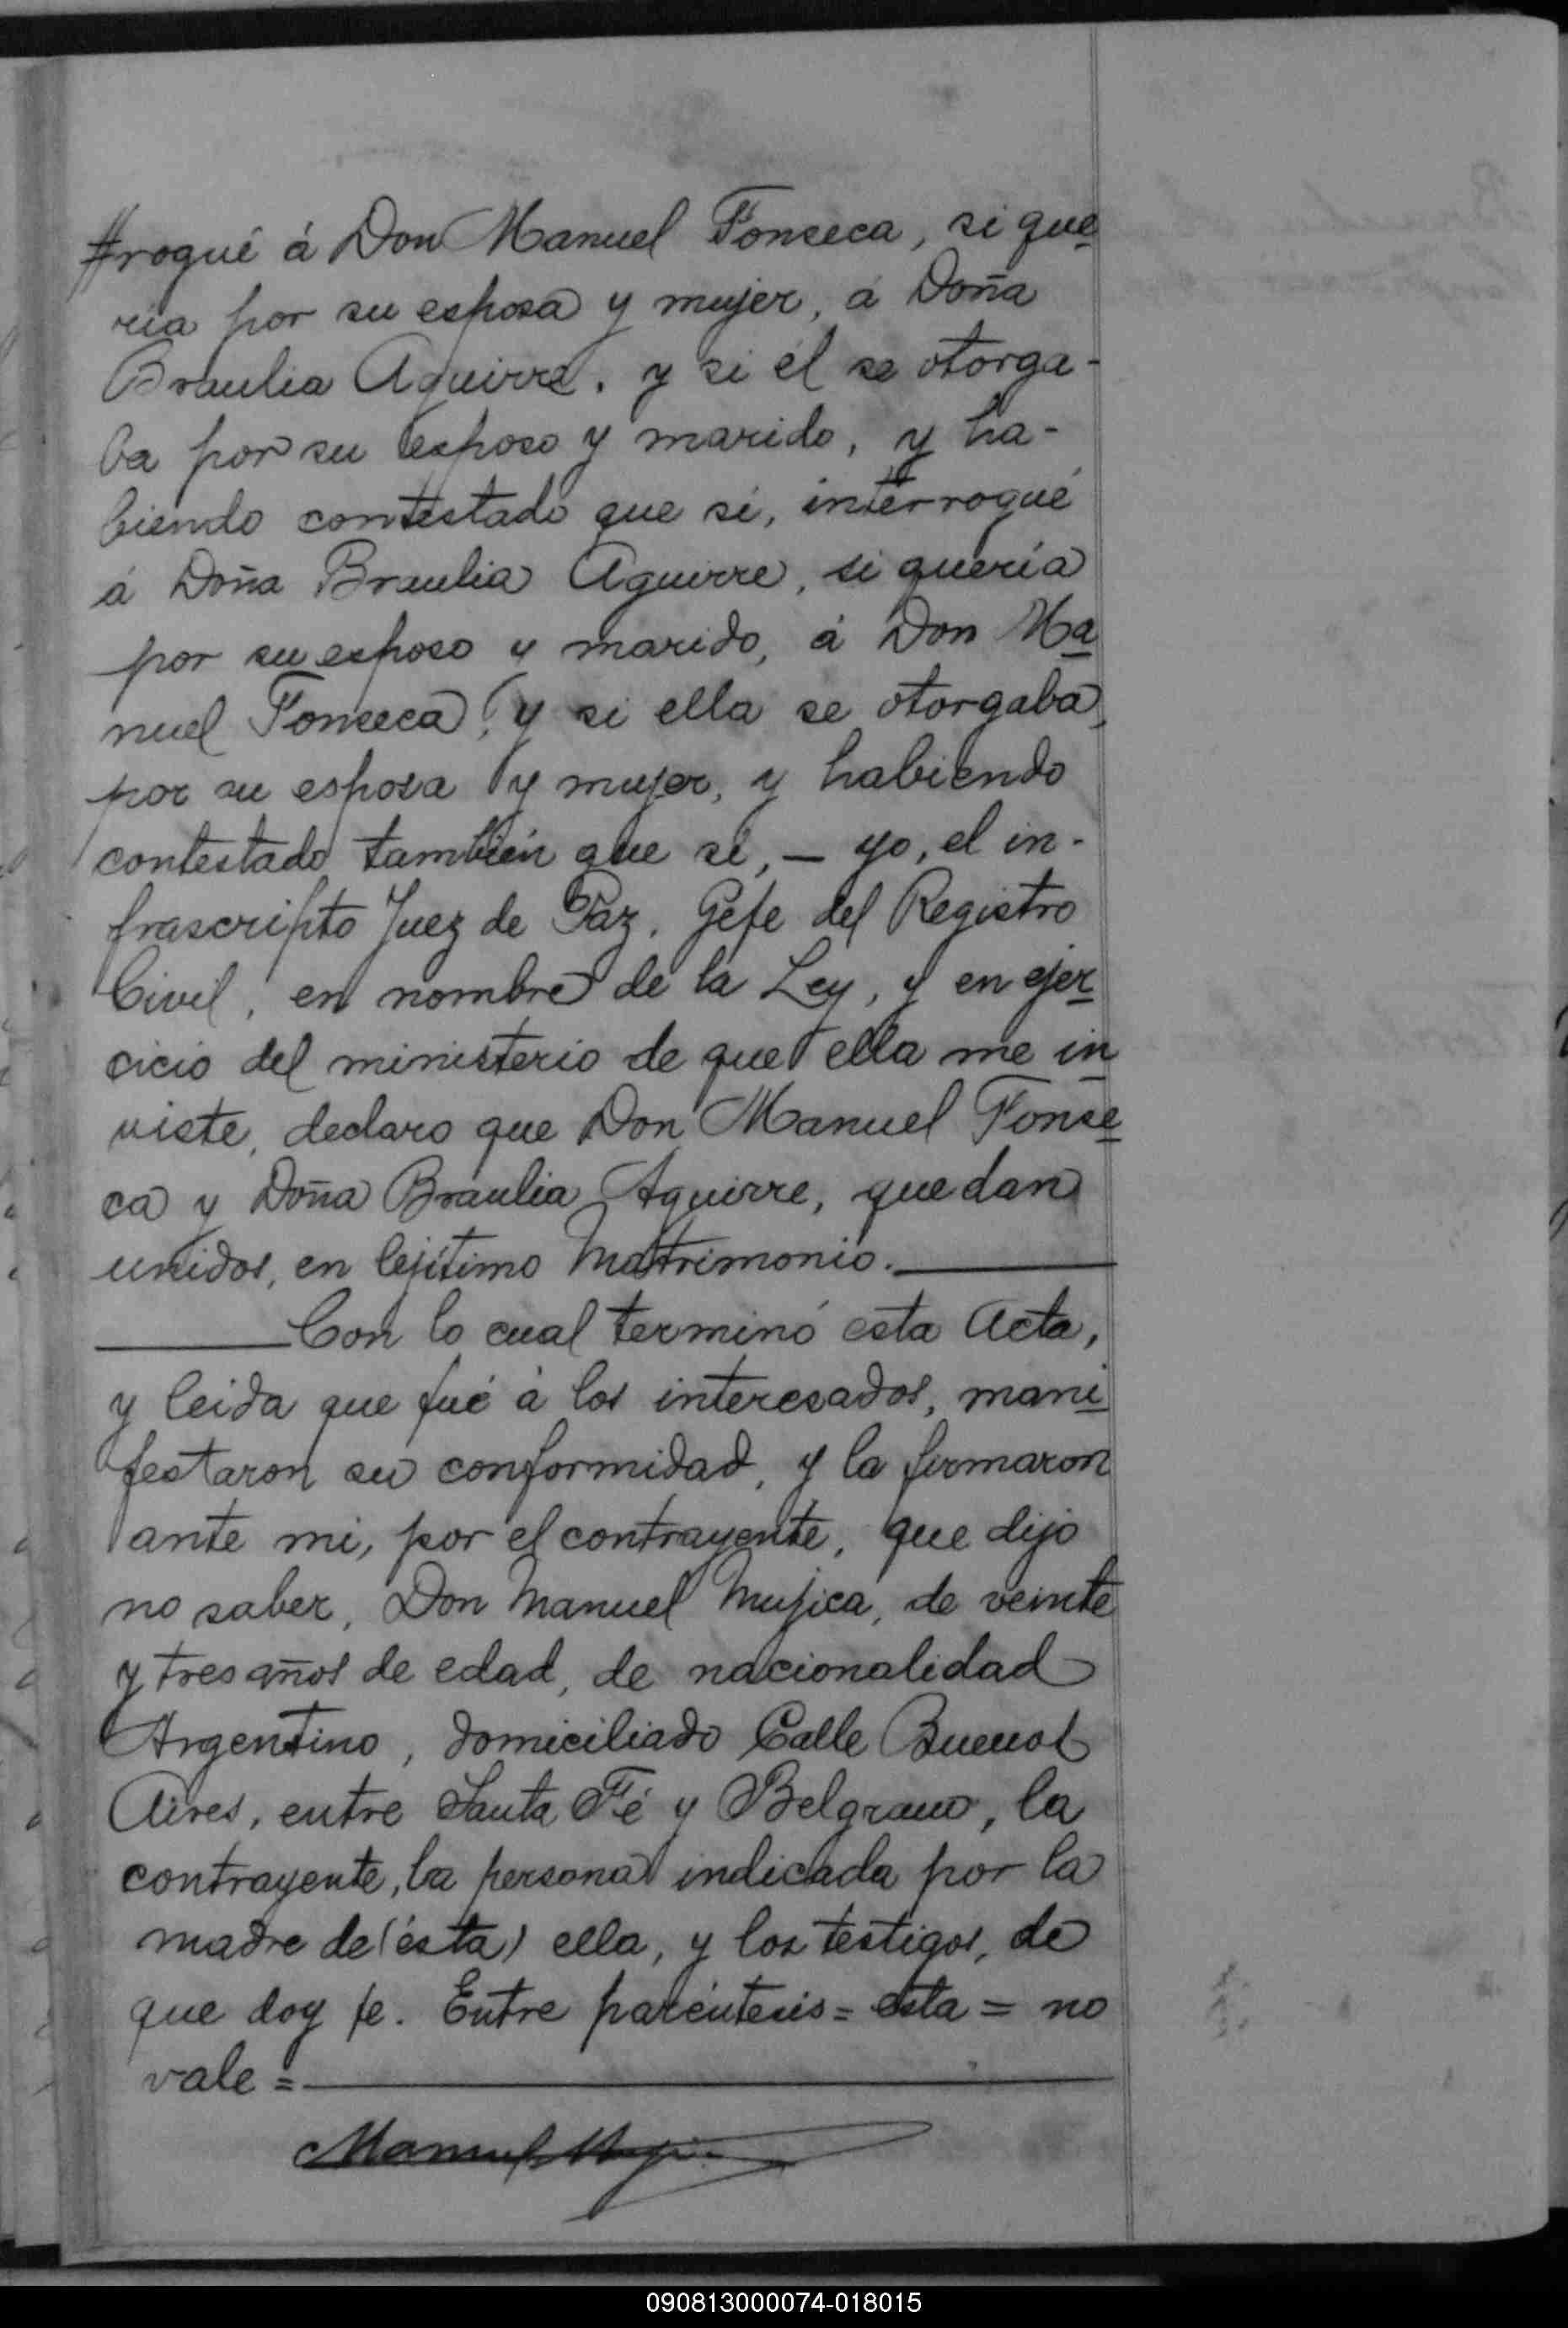 rogué á Don Manuel Fonseca, si que
ria por su esposa y mujer, á Doña
Braulia Aguirre, y si él se otorga-
ba por su esposo y marido, y ha-
biendo contestado que si, interrogué
á Doña Braulia Aguirre, si quería
por su esposo y marido, á Don Ma
nuel Fonseca, y si ella se otorgaba,
por su esposa y mujer, y habiendo
contestado también que si, — yo, el in-
frascripto Juez de Paz, Gefe del Registro
Civil, en nombre de la Ley, y en ejer
cicio del ministerio de que ella me in
viste, declaro que Don Manuel Fonse
ca y Doña Braulia Aguirre, quedan
unidos, en lejítimo Matrimonio.
Con lo cual terminó esta Acta,
y leida que fué á los interesados, mani
festaron su conformidad, y la firmaron
ante mi, por el contrayente, que dijo
no saber, Don Manuel Mujica, de veinte
y tres años de edad, de nacionalidad
Argentino, domiciliado Calle Buenos
Aires, entre Santa Fé y Belgrano, la
contrayente, la persona indicada por la
madre de (ésta) ella, y los testigos, de
que doy fe. Entre paréntesis = esta = no
vale =
Manuel Muji
090813000074-018015